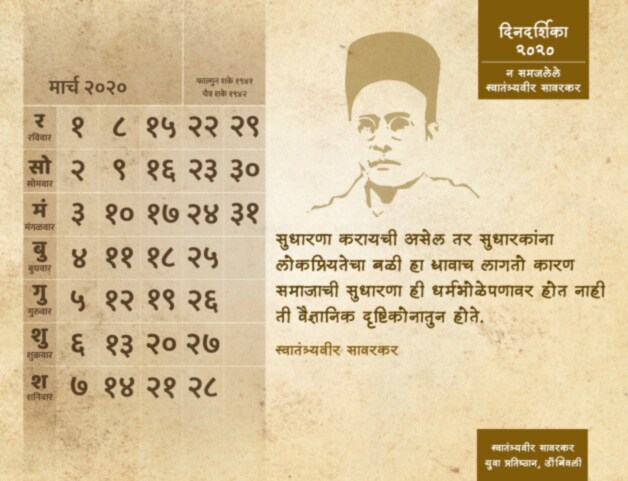 दिनदर्शिका
२०२०
न समजलेले
स्वातंत्र्यवीर सावरकर
मार्च २०२०
फाल्गुन शके १९४१
चैत्र शके १९४२
र १ ८ १५ २२ २९
रविवार
सो २ ९ १६ २३ ३०
सोमवार
मं ३ १० १७ २४ ३१
मंगळवार
बु ४ ११ १८ २५
बुधवार
गु ५ १२ १९ २६
गुरुवार
शु ६ १३ २० २७
शुक्रवार
श ७ १४ २१ २८
शनिवार
सुधारणा करायची असेल तर सुधारकांना
लोकप्रियतेचा बळी हा द्यावाच लागतो कारण
समाजाची सुधारणा ही धर्मभोळेपणावर होत नाही
ती वैज्ञानिक दृष्टिकोनातुन होते.
स्वातंत्र्यवीर सावरकर
स्वातंत्र्यवीर सावरकर
युवा प्रतिष्ठान, डोंबिवली